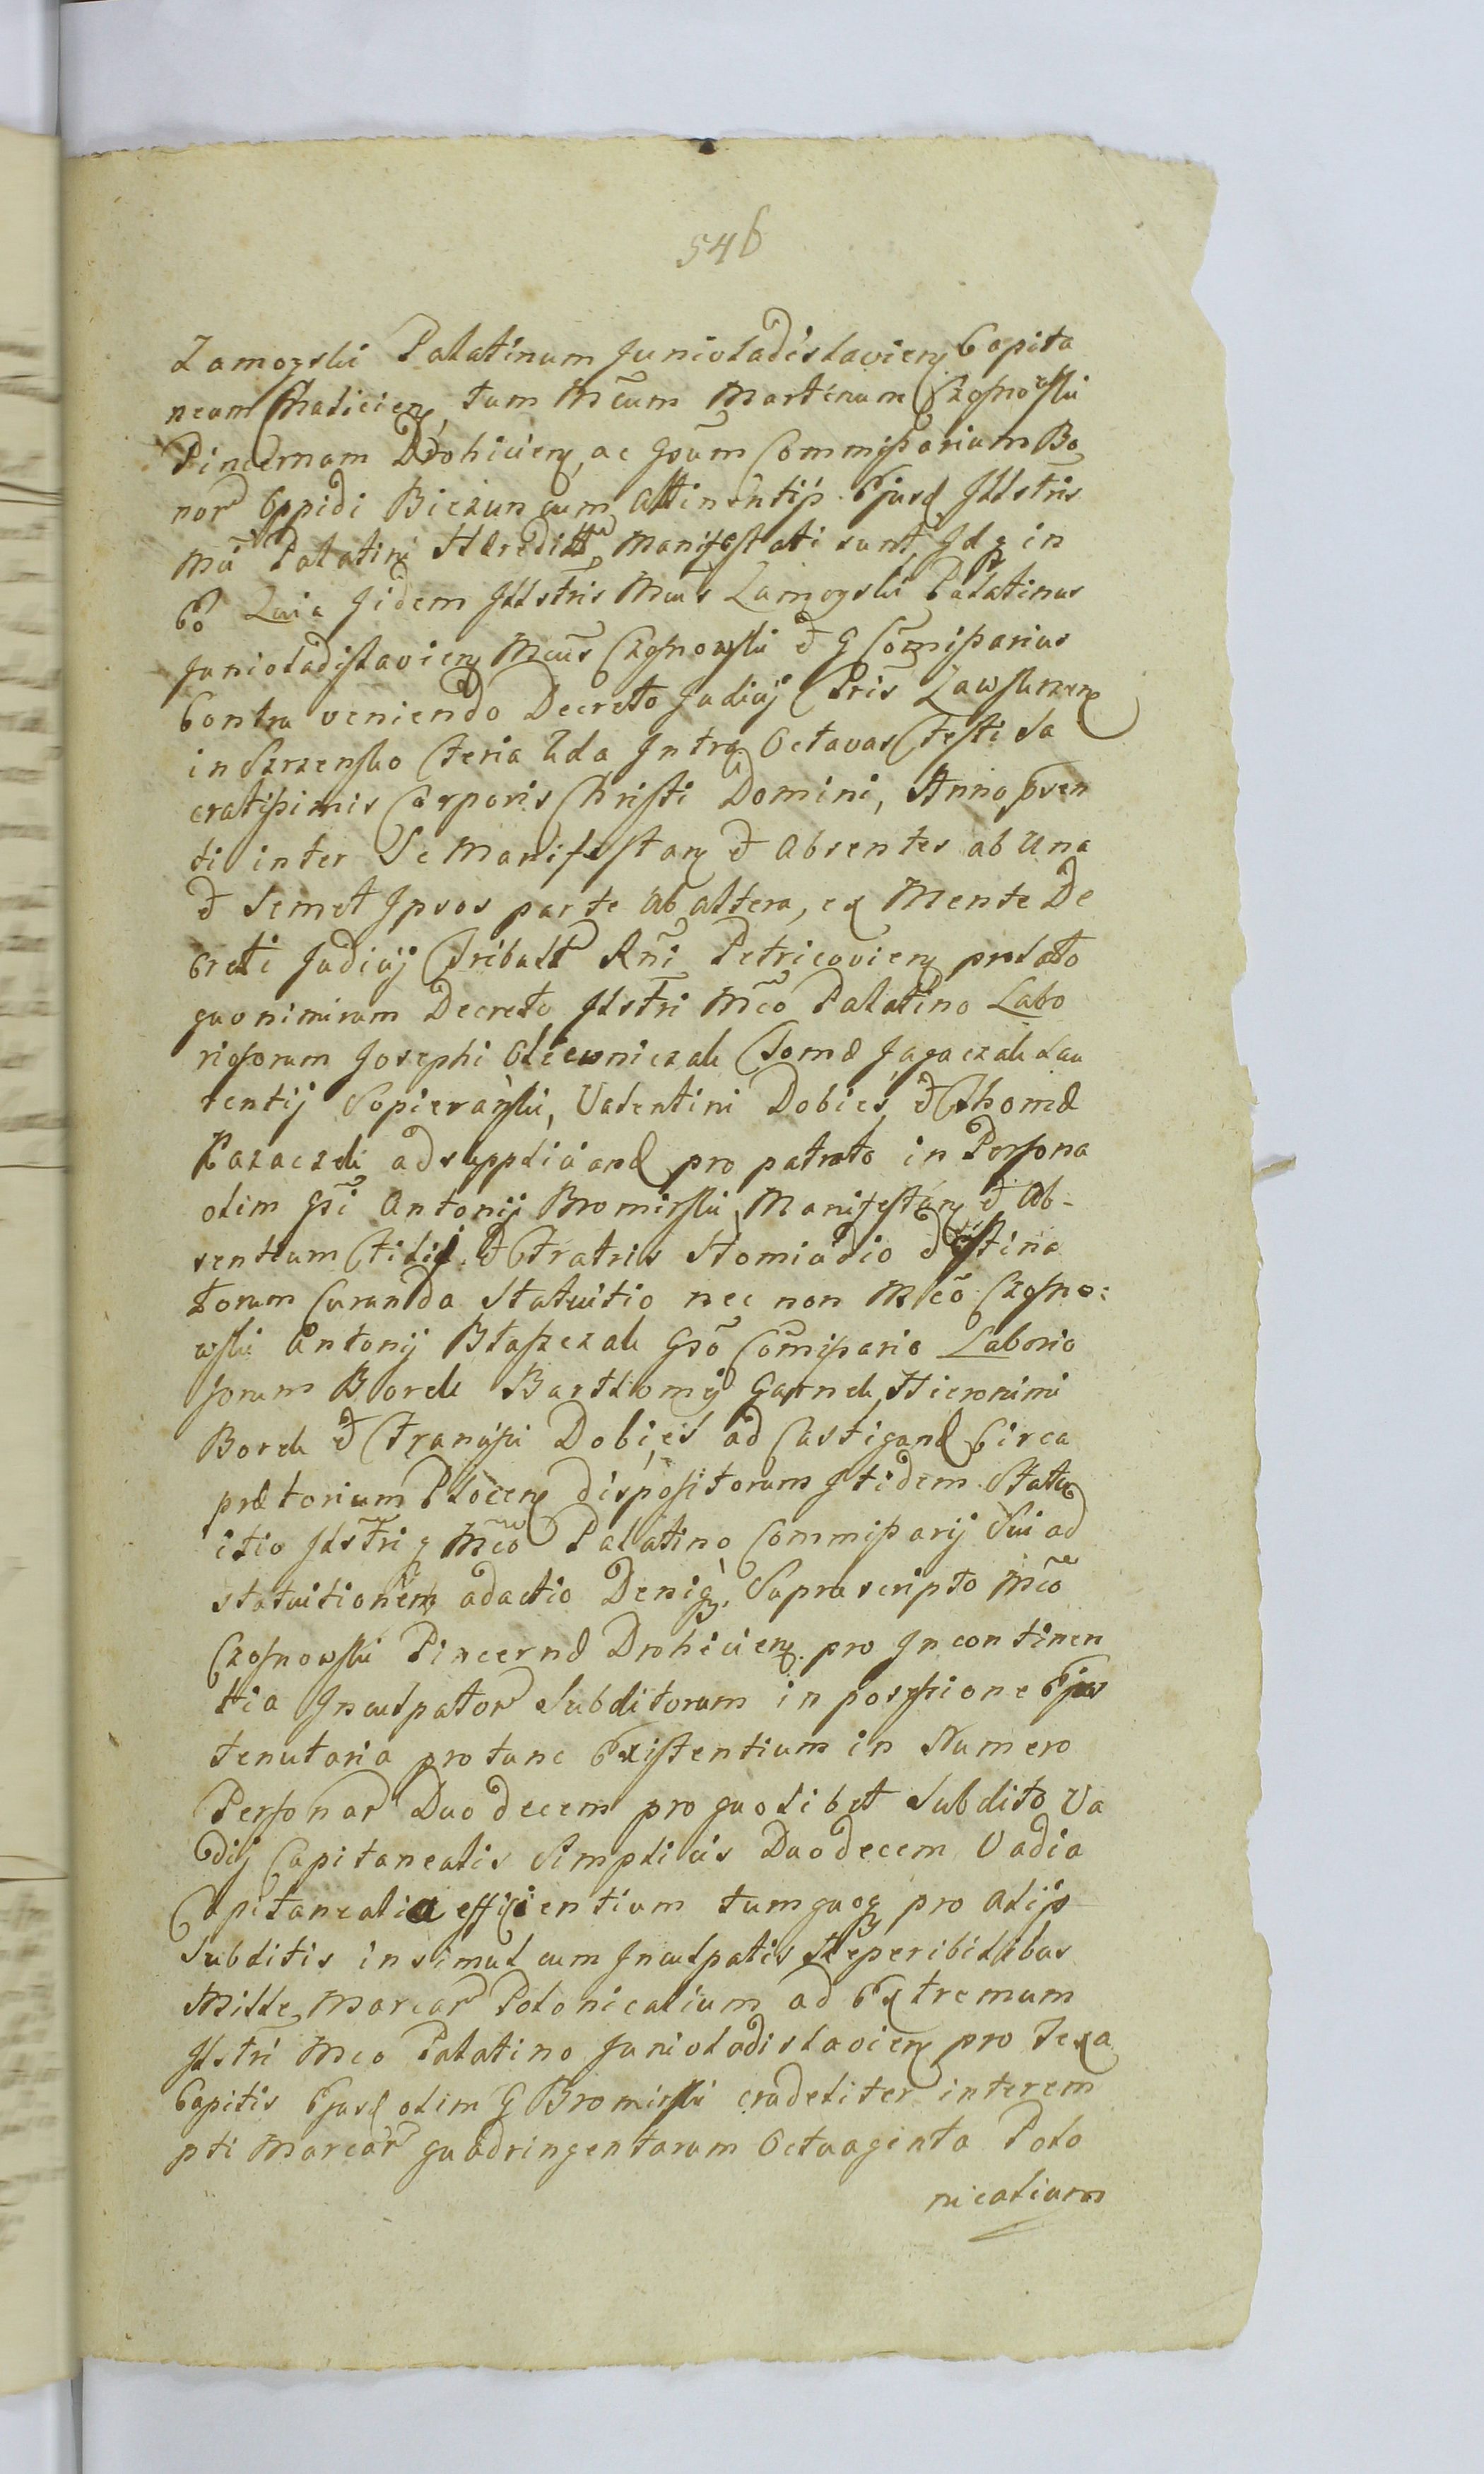 546
Zamoyski Palatinum Junivladislavien Capita
neum Halicien, tum Mcum Martinum Czosnowski
Pincernam Drohicien, ac Gsum Commissarium Bo
nor Oppidi Biezun cum Attinentijs Ejusd Illstris
Mci Palatini Hæreditt, Manifestati sunt, Idq in
Eo Quia Iidem Illstris Mcus Zamoyski Palatinus
Junivladislavien Mcus Czosnowski et G Comissarius
Contra veniendo Decreto Judicij Pris Zawskrzen
in Szrzensko Feria 2da Intra Octavas Festi Sa
cratissimis Corporis Christi Domini, Anno præsen
ti inter Se Manifestan et Absentes ab Una
et Semet Ipsos parte ab altera, ex Mente De
creti Judicij Tribalt Rni Petricovien prolato
quo nimirum Decreto, Illstri Mco Palatino Labo
riosorum Josephi Olewniczak Tomæ Jagaczak Lau
rentij Sopieranski, Valentini Dobies, et Thomæ
Kazaczek ad suppliciand pro patrato in Persona
olim Gsi Antonij Bromirski, Manifestan et Ab-
sentium Filij et Fratris Homicidio destina
torum Curanda Statuitio nec non Mco Czosno:
wski Antonij Błaszczak Gso Comissario Laborio
sorum Borek Bartłomij Garnek, Hieronimi
Borek et Francisci Dobies ad Castigand Circa
prætorium Plocen dispositorum Itidem Statu
itio Illstri q Mco Palatino Commissarij Sui ad
statuitionem adactio Deniq. Suprascripto Mco
Czosnowski Pincernæ Drohicien. pro Incontinen
tia Inculpator Subditorum in possessione Ejus
tenutaria pro tunc Existentium in Numero
Personar Duodecem pro quolibet Subdito Va
dij Capitanealis Simplicis Duodecem Vadia
Capitanealia efficientium tum quoq pro alijs
Subditis insimul cum Inculpatis Reperibilibus
Mille Marcar Polonicalium ad Extremum
Illstri Mco Palatino Junivladislavien pro Texa
Capitis Ejusd olim G Bromirski crudeliter interem
pti Marcar quadringentarum Octuaginta Polo
nicalium